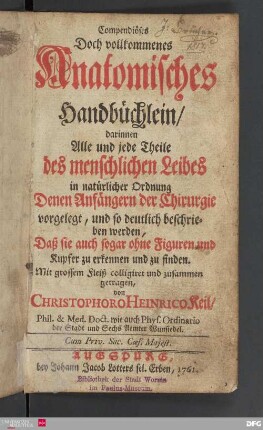 Compendiöses
Doch vollkommenes
Anatomisches
Handbüchlein/
darinnen
Alle und jede Theile
des menschlichen Leibes
in natürlicher Ordnung
Denen Anfängern der Chirurgie
vorgelegt, und so deutlich beschrie-
ben werden,
Daß sie auch sogar ohne Figuren und
Kupfer zu erkennen und zu finden.
Mit grossem Fleiß colligiret und zusammen
getragen,
von
CHRISTOPHORO HEINRICO Keil/
Phil. & Med. Doct. wie auch Phys. Ordinario
der Stadt und Sechs Aemter Wunsiedel.
Cum Priv. Sac. Cæs. Majest.
AUGSPURG,
bey Johann Jacob Lotters sel. Erben, 1761.
Bibliothek der Stadt Worms
im Paulus-Museum.